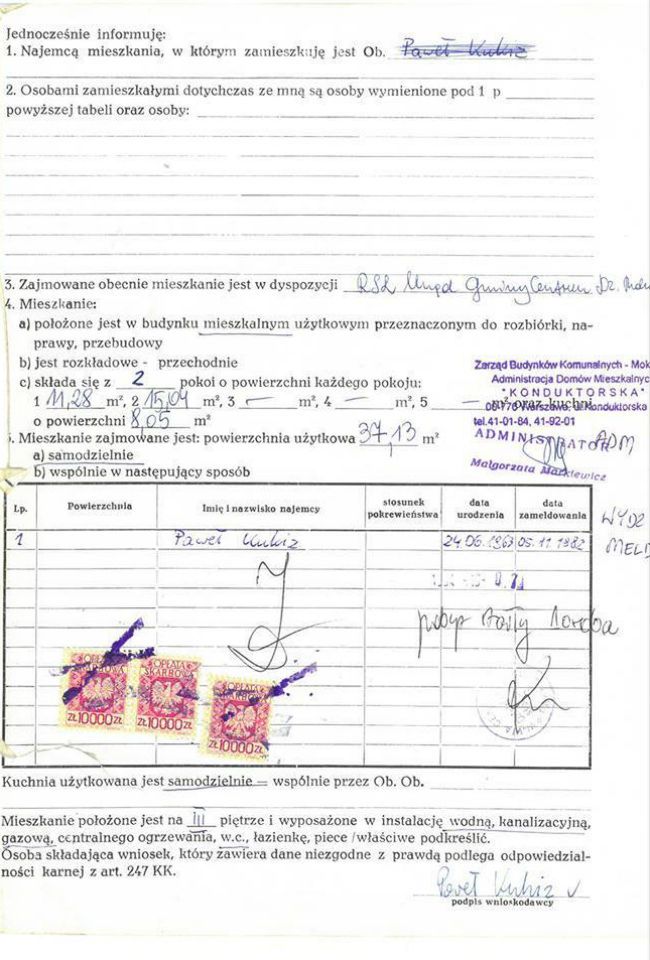 Jednocześnie informuję:
1. Najemcą mieszkania, w którym zamieszkuję jest Ob. Paweł Kukiz
2. Osobami zamieszkałymi dotychczas ze mną są osoby wymienione pod 1 p
powyższej tabeli oraz osoby:
3. Zajmowane obecnie mieszkanie jest w dyspozycji Urząd Gminy Centrum Dz.
4. Mieszkanie:
a) położone jest w budynku mieszkalnym użytkowym przeznaczonym do rozbiórki, na-
prawy, przebudowy
b) jest rozkładowe - przechodnie
Zarząd Budynków Komunalnych - Mok
c) składa się z 2 pokoi o powierzchni każdego pokoju:
Administracja Domów Mieszkalnyc
"KONDUKTORSKA"
1 11,28 m², 2 15,04 m², 3 — m², 4 — m², 5 — m² oraz kuchni
Warszawa, Konduktorska
o powierzchni 8,05 m²
tel. 41-01-84, 41-92-01
ADMINISTRATOR ADM
. Mieszkanie zajmowane jest: powierzchnia użytkowa 37,13 m²
a) samodzielnie
Małgorzata Markiewicz
b) wspólnie w następujący sposób
Lp. Powierzchnia Imię i nazwisko najemcy stosunek pokrewieństwa data urodzenia data zameldowania
1 Paweł Kukiz 24.06.1963 05.11.1982
WYDZ
MELD
OPŁATA SKARBOWA ZŁ 10000 ZŁ
OPŁATA SKARBOWA ZŁ 10000 ZŁ
ZŁ 10000 ZŁ
Kuchnia użytkowana jest samodzielnie — wspólnie przez Ob. Ob.
Mieszkanie położone jest na III piętrze i wyposażone w instalację wodną, kanalizacyjną,
gazową, centralnego ogrzewania, w.c., łazienkę, piece /właściwe podkreślić.
Osoba składająca wniosek, który zawiera dane niezgodne z prawdą podlega odpowiedzial-
ności karnej z art. 247 KK.
Paweł Kukiz
podpis wnioskodawcy